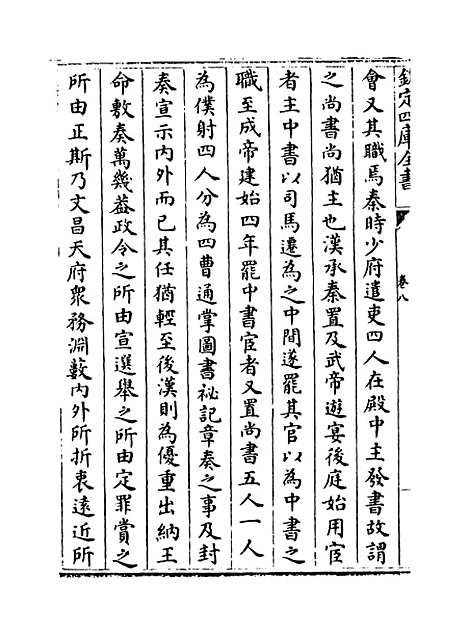 欽定四庫全書
卷八
會又其職焉秦時少府遣吏四人在殿中主發書故謂
之尚書尚猶主也漢承秦置及武帝遊宴後庭始用宦
者主中書以司馬遷為之中間遂罷其官以為中書之
職至成帝建始四年罷中書宦者又置尚書五人一人
為僕射四人分為四曹通掌圖書祕記章奏之事及封
奏宣示內外而已其任猶輕至後漢則為優重出納王
命敷奏萬幾葢政令之所由宣選舉之所由定罪賞之
所由正斯乃文昌天府衆務淵藪內外所折衷遠近所